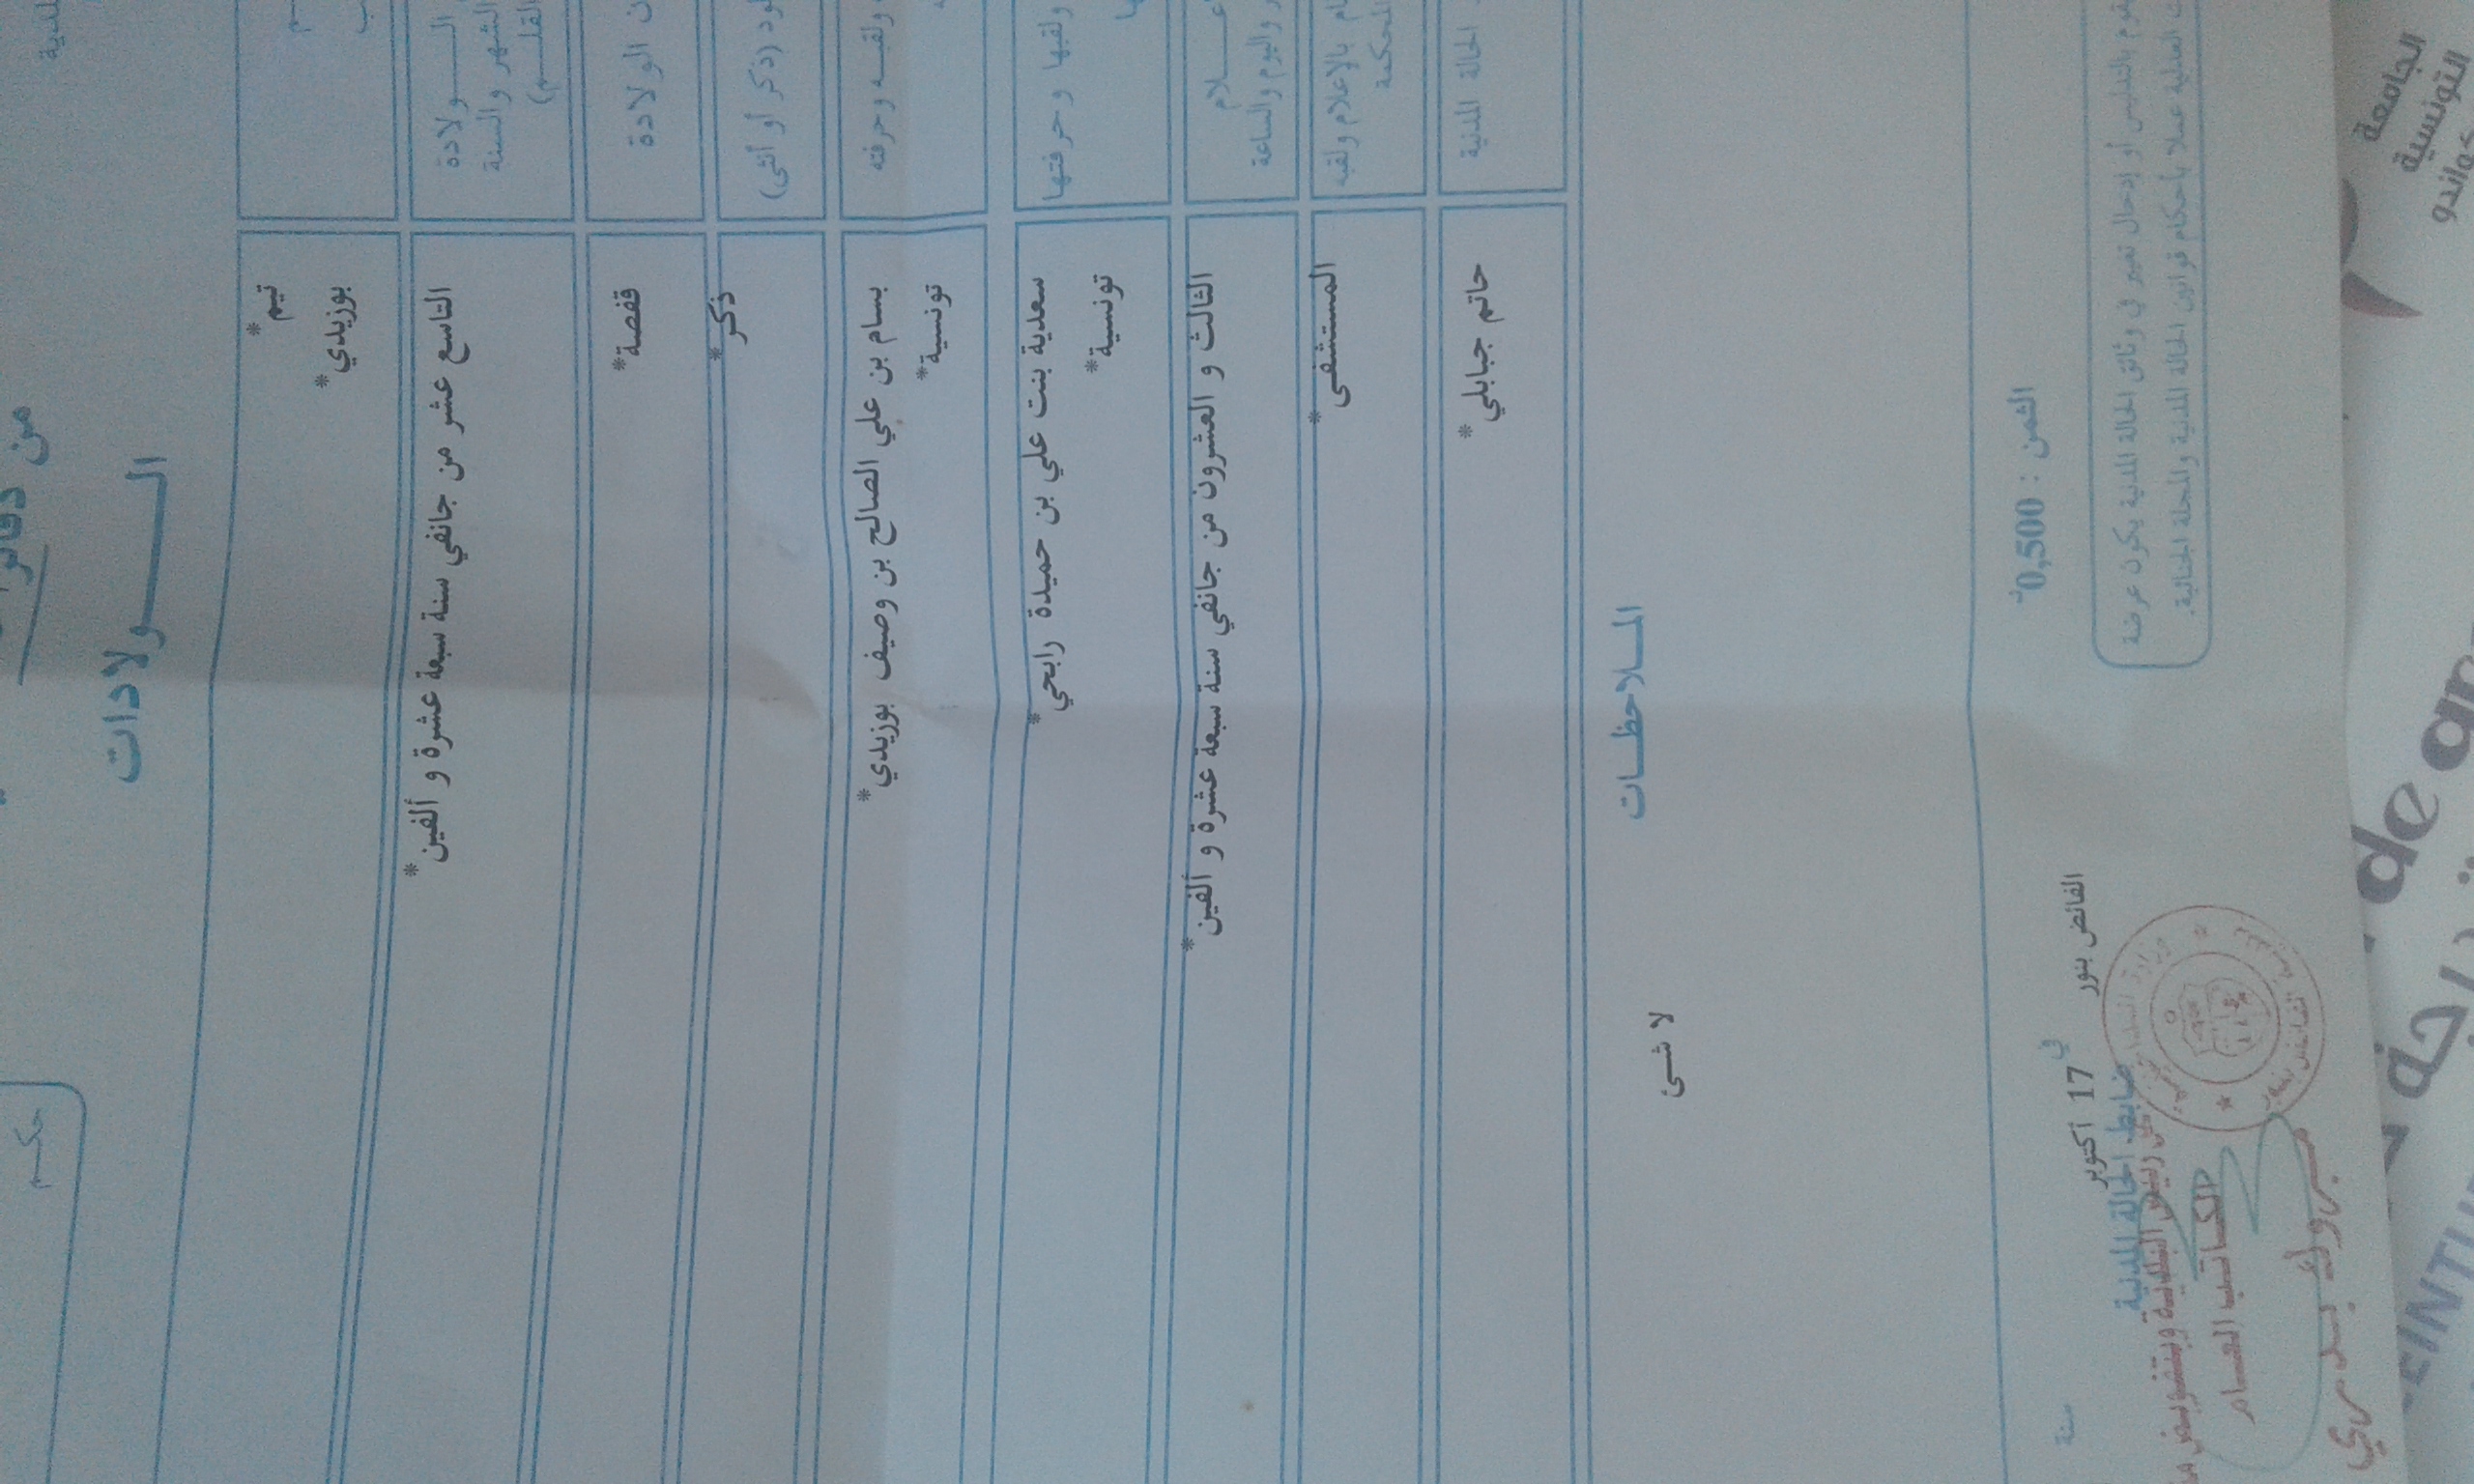 من دفاتر
الـــولادات
حكـــم
تيم*
بوزيدي*
الـــولادة
الشهر والسنة
القلـــم)
التاسع عشر من جانفي سنة سبعة عشرة و ألفين*
ن الولادة
قفصة*
ـود (ذكر أو أنثى)
ذكر*
ولقبـــه وحرفته
بسام بن علي الصالح بن وصيف بوزيدي*
تونسية*
ولقبها وحرفتها
سعدية بنت علي بن حميدة رابحي*
تونسية*
عـــلام
واليوم والساعة
الثالث و العشرون من جانفي سنة سبعة عشرة و ألفين*
ام بالإعلام ولقبه
المحكمة
المستشفى*
الحالة المدنية
حاتم جبابلي*
المـــلاحظـــات
لا شئ
الثمن : 0,500د
يقوم بالتدليس أو إدخال تغيير في وثائق الحالة المدنية يكون عرضة
العدلية عملا بأحكام قوانين الحالة المدنية والمجلة الجنائية.
الفائض بنور في 17 أكتوبر سنة
ضابط الحالة المدنية
عن رئيس البلدية وبتفويض منه
الكاتب العام
مبروك بدري
الجامعة
التونسية
de